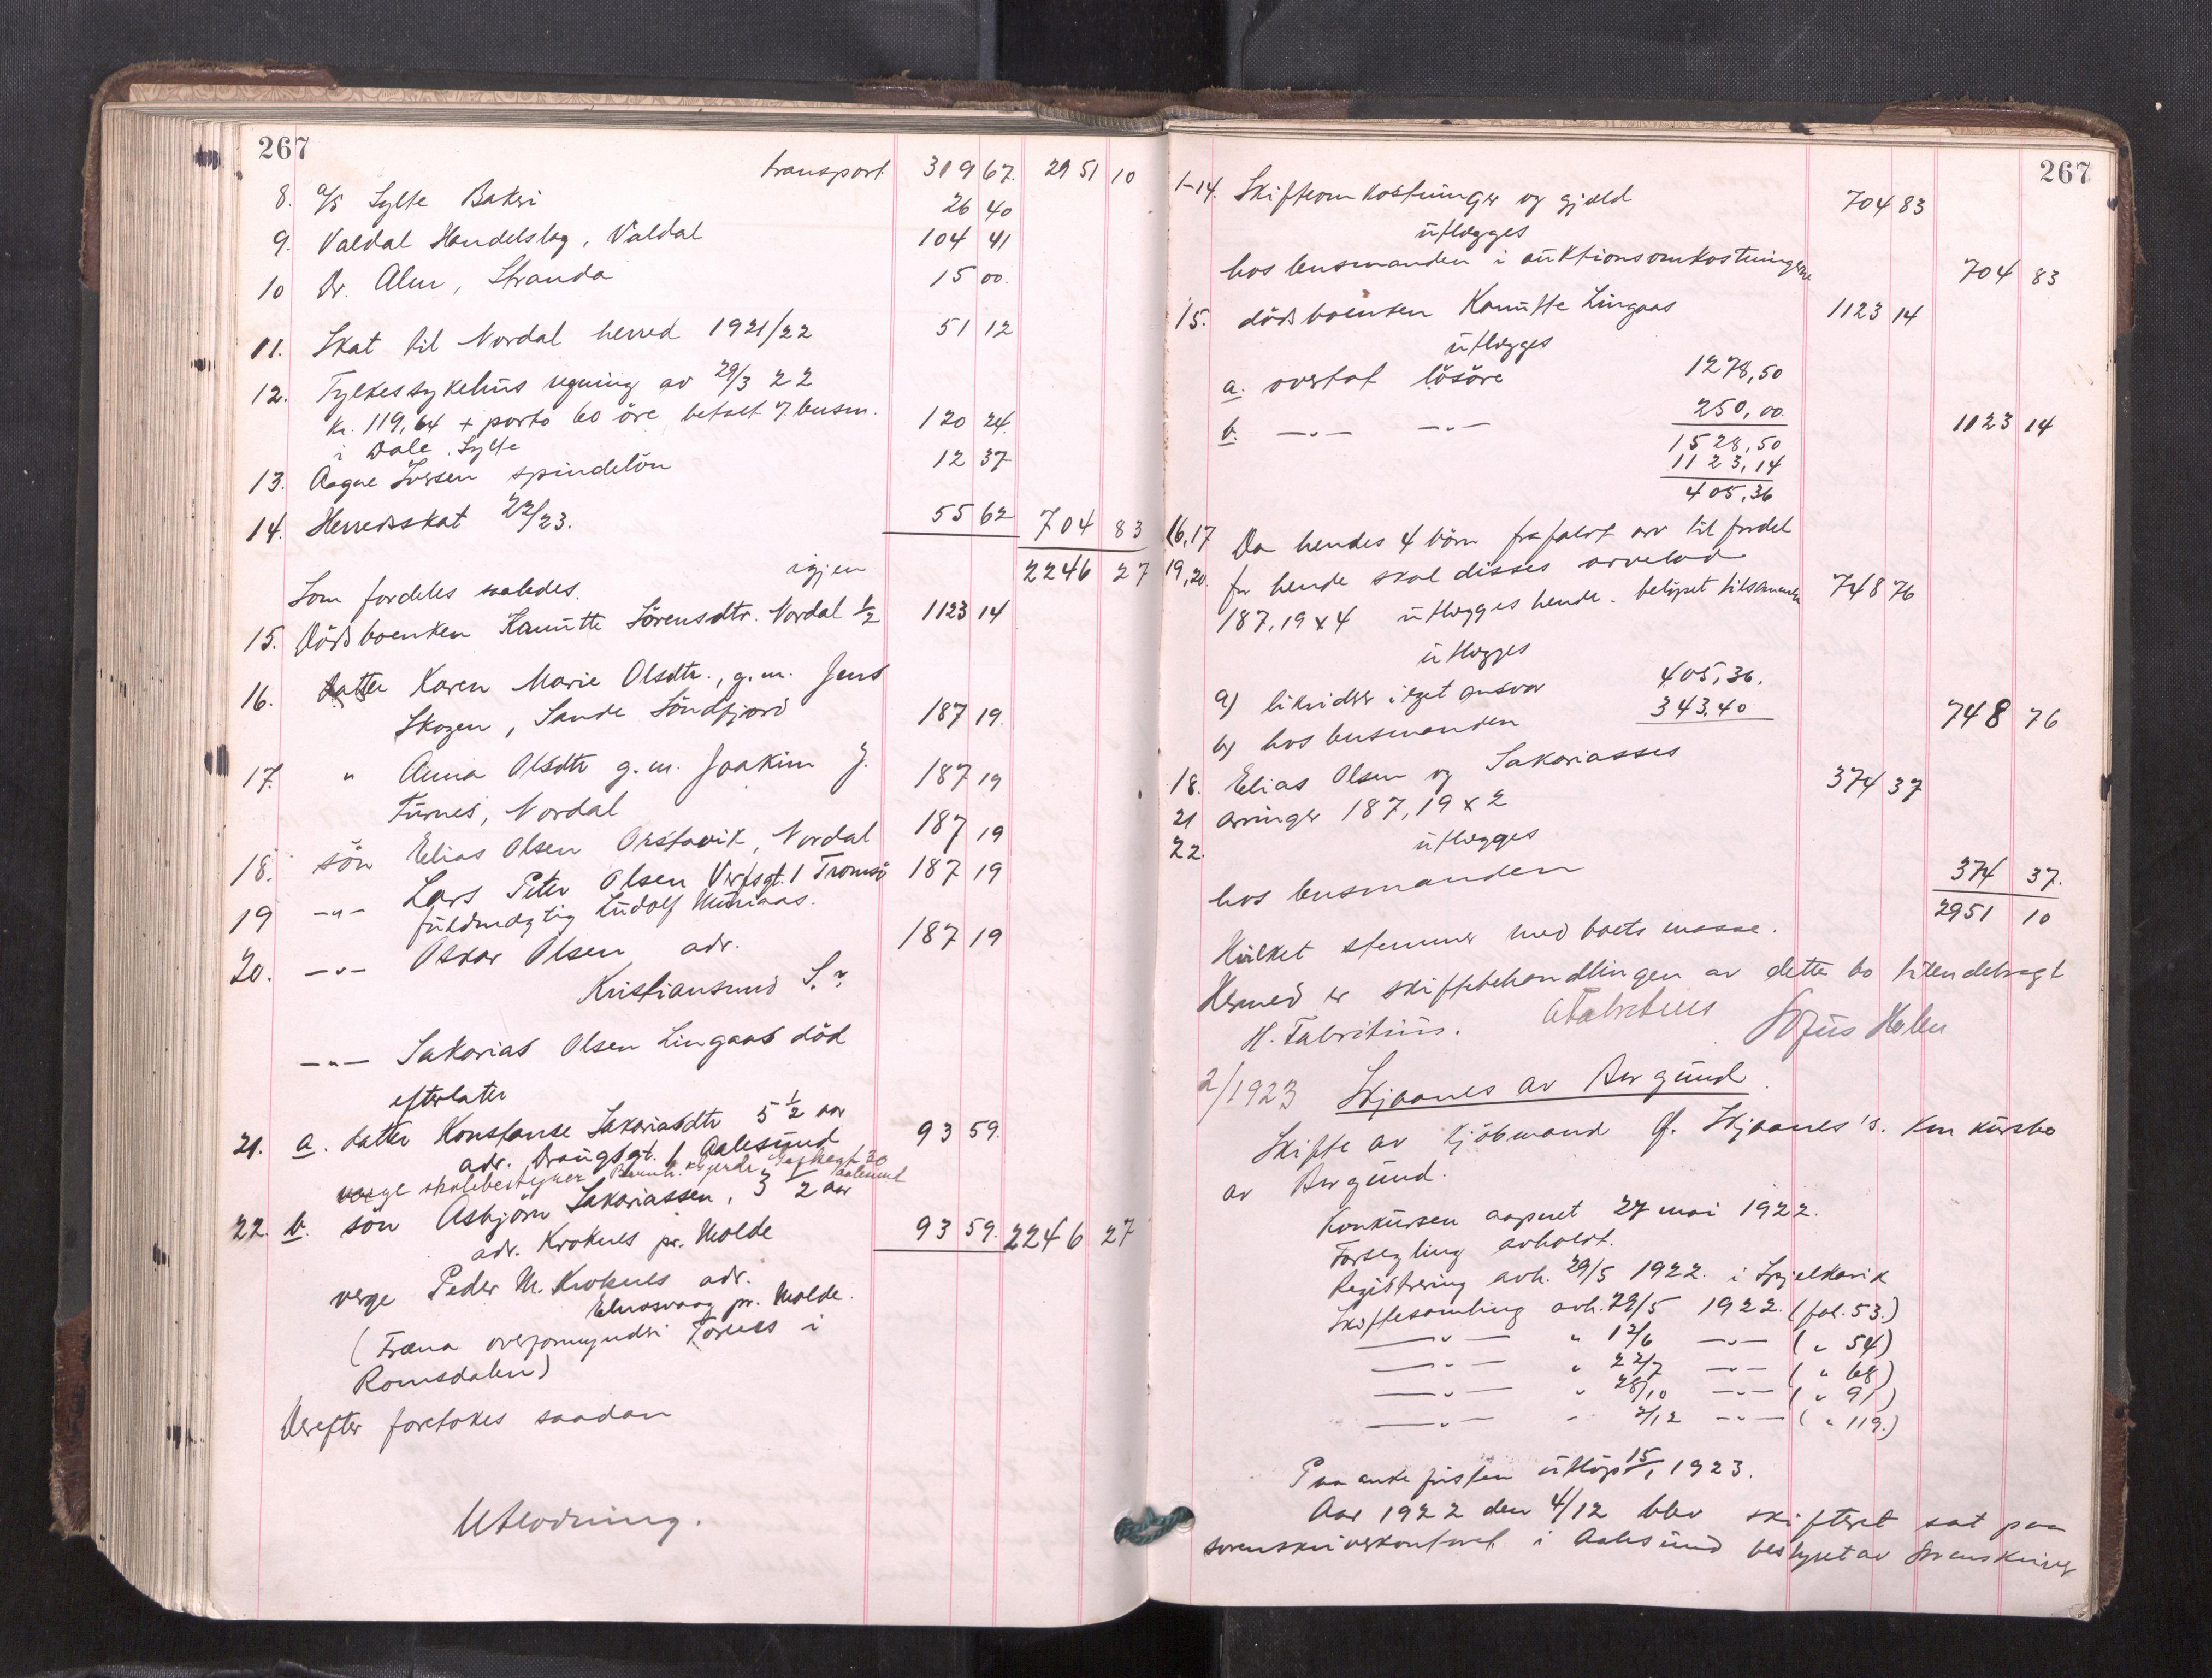 267
transport 319 67. 2951 10
8. a/s Sylte Bakeri 26 40
9. Valdal Handelslag, Valdal 104 41
10 Dr. Alm, Stranda 15 00.
11. Skat til Nordal herred 1921/22 51 12
12. Fylkessykehus regning av 29/3 22
Kr. 119,64 + porto 60 öre betalt af busm. 120 24.
i Dale, Sylte
13. Aagne Iversen spindelön 12 37
14. Herredsskat 22/23. 55 62 704 83
igjen 2246 27
Som fordeles saaledes.
15. Dödsboenken Knutte Sörensdtr. Nordal 1/2 1123 14
16. datter Karen Marie Olsdtr., g.m. Jens
Skogen, Sande Söndfjord 187 19.
17. " Anna Olsdtr g.m. Joakim J. 187 19
Furnes, Nordal
18. sön Elias Olsen Orstavik, Nordal 187 19
19 -"- Lars Peter Olsen Verftsgt. 1 Tromsö 187 19
fuldmægtig Ludolf
20. -"- Oskar Olsen adr. 187 19
Kristiansund S.?
-"- Sakarias Olsen Lingaas död
efterlater
21. a. datter Konstanse Sakariasdtr 5 1/2 aar 93 59.
adr. Draugsgt. 1 Aalesund
verge skolebestyrer 20 Aalesund
22. b. sön Asbjörn Sakariassen, 3 1/2 aar
adr. Kroknes pr. Molde 93 59. 2246 27
verge Peder M. Kroknes adr.
Elnesvaag pr. Molde.
(Fræna overformynderi i
Romsdalen)
Derefter foretokes saadan
Utlodning.
267
1-14. Skifteomkostninger og gjæld 704 83
utlægges
hos busmanden i auktionsomkostningerne 704 83
15. dödsboenken Knutte Lingaas 1123 14
utlægges
a. overtat lösöre 1278,50
b. -"- -"- 250,00. 1123 14
1528,50
1123,14
405,36
16,17 Da hendes 4 börn frafaldt arv til fordel
19,20. for hende skal disses arvelod
187,19 x 4 utlægges hende. belöpet tilsammen 748 76
utlægges
a) likvideres i eget ansvar 405,36.
b) hos busmanden 343.40 748 76
18. Elias Olsen og Sakariasses 374 37
21 arvinger 187,19 x 2
22. utlægges
hos busmanden 374 37.
2951 10
Hvilket stemmer med boets masse.
Hermed er skiftebehandlingen av dette bo tilendebragt
H. Fabritius. AFabritius Sofus Holen
2/1923 Skjaanes av Borgund.
Skifte av kjöbmand O. Skjaanes's. konkursbo
av Borgund.
Konkursen aapnet 27 mai 1922.
Forsegling avholdt.
Registrering avh. 29/5 1922. i Spjelkavik
Skiftesamling avh. 29/5 1922. (fol. 53.)
-"- " 12/6 -"- ( " 54)
-"- " 22/7 -"- ( " 68)
-"- " 28/10 -"- ( " 91)
-"- " 2/12 -"- ( " 119.)
Paaankefristen utlöp 15/1 1923.
Aar 1922 den 4/12 blev skifteret sat paa
sorenskriverkontoret i Aalesund bestyret av sorenskriver